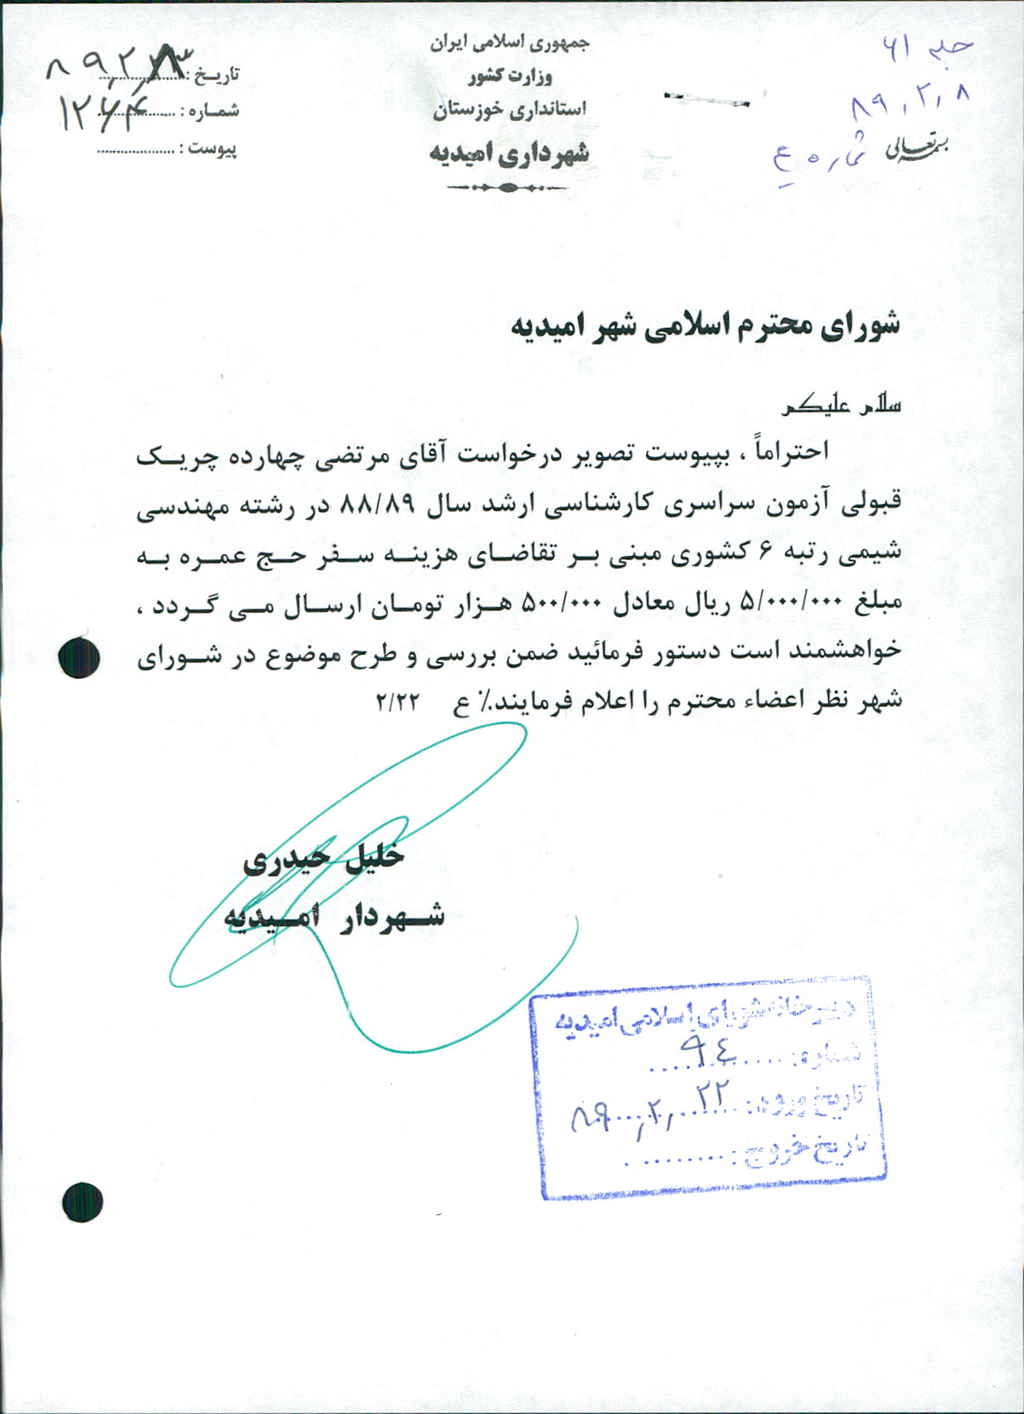 جلسه ۶۱
۸۹,۲,۸
شماره ع
بسمه تعالی
جمهوری اسلامی ایران
وزارت کشور
استانداری خوزستان
شهرداری امیدیه
تاریخ :
شماره : ۱۲۶۴
پیوست :
شورای محترم اسلامی شهر امیدیه
سلام علیکم
احتراماً ، بپیوست تصویر درخواست آقای مرتضی چهارده چریک
قبولی آزمون سراسری کارشناسی ارشد سال ۸۸/۸۹ در رشته مهندسی
شیمی رتبه ۶ کشوری مبنی بر تقاضای هزینه سفر حج عمره به
مبلغ ۵/۰۰۰/۰۰۰ ریال معادل ۵۰۰/۰۰۰ هزار تومان ارسال می گردد ،
خواهشمند است دستور فرمائید ضمن بررسی و طرح موضوع در شورای
شهر نظر اعضاء محترم را اعلام فرمایند.٪ ع ۲/۲۲
خلیل حیدری
شهردار امیدیه
دبیرخانه شورای اسلامی امیدیه
شماره: ۹۴
تاریخ ورود: ۸۹,۲,۲۲
تاریخ خروج: